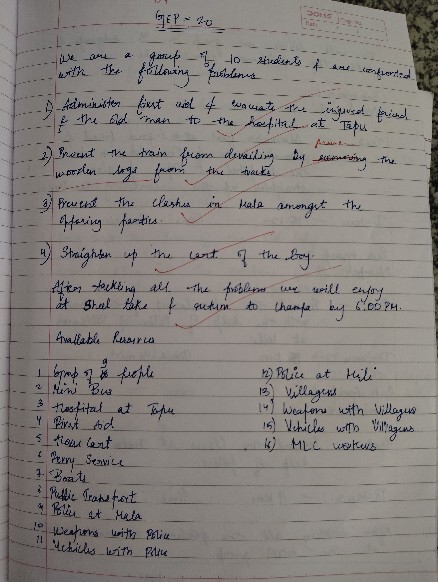 GEP - 20
We are a group of 10 students & are confronted
with the following problems
1) Administer first aid & evacuate the injured friend
& the old man to the hospital at Tapu
2) Prevent the train from derailing by the
wooden logs from the tracks.
3) Prevent the clashes in Mala amongst the
opposing parties.
4) Straighten up the cart of the boy.
After tackling all the problems we will enjoy
at lake & return to by 6:00 PM.
Available Resources
1 Group of 9 people
2 Mini Bus
3 Hospital at Tapu
4 First Aid
5 Cart
6 Ferry Service
7 Boats
8 Public Transport
9 Police at Mala
10 Weapons with Police
11 Vehicles with Police
12) Police at
13) Villagers
14) Weapons with Villagers
15) Vehicles with Villagers
16) MLC workers